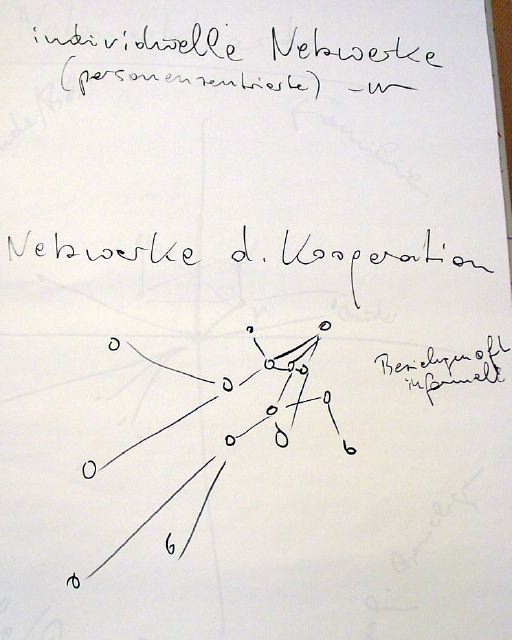 individuelle Netzwerke
(personenzentrierte)
Netzwerke d. Kooperation
Beziehungen oft
informell